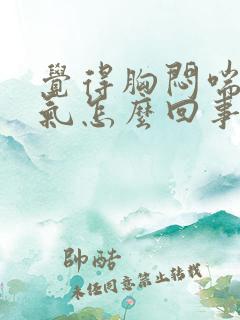 覺得胸悶喘
氣怎麼回事
帥酷
未经同意禁止转载